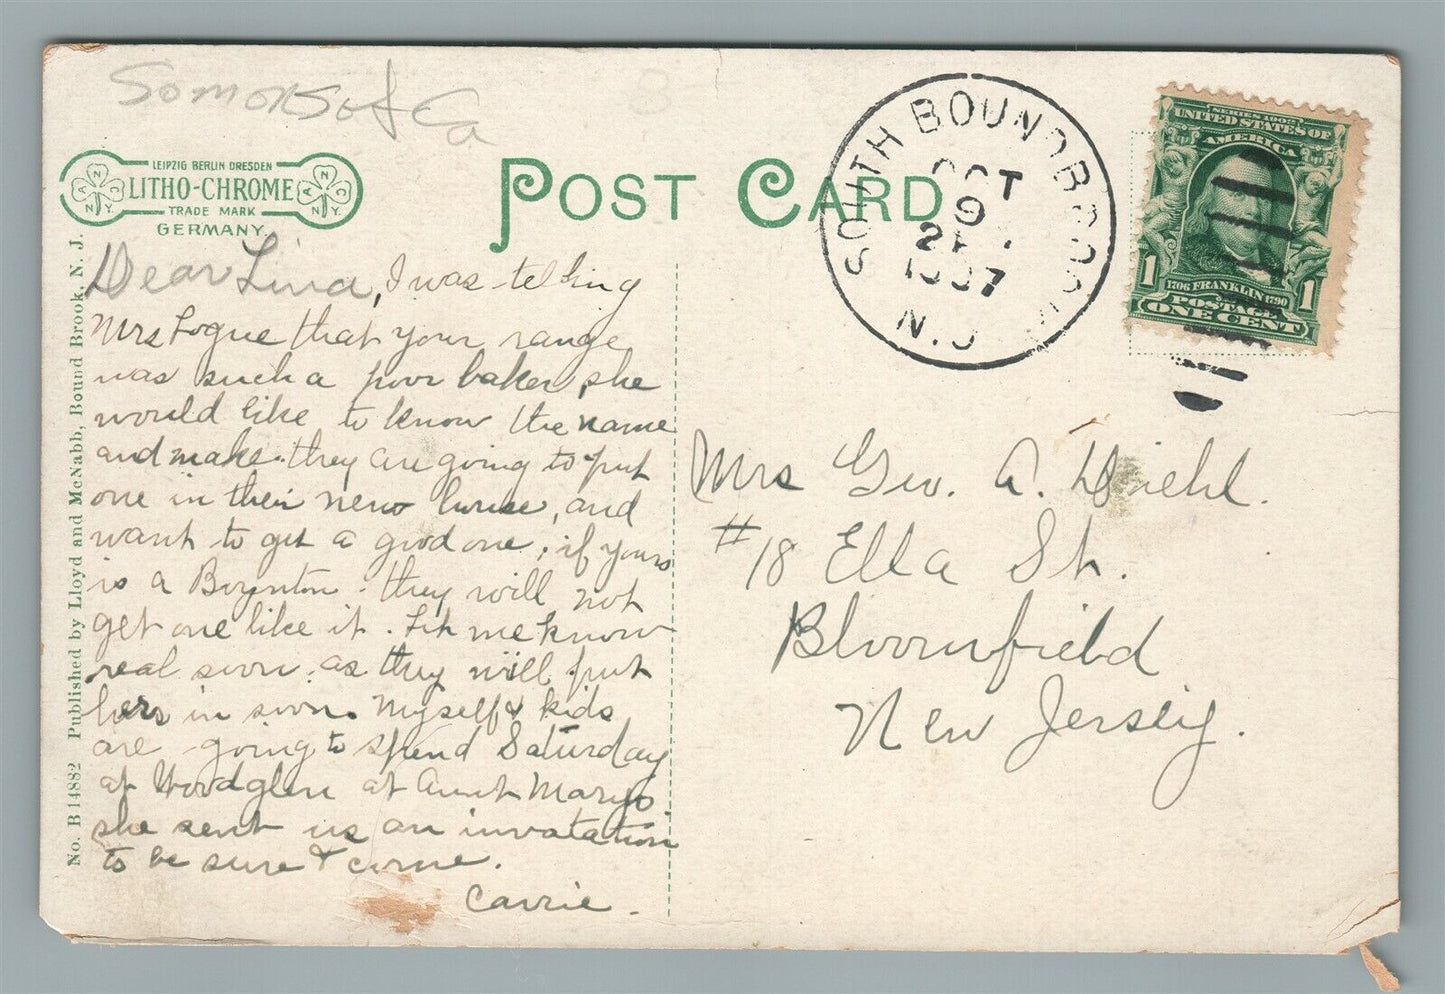 Somerset Co
LEIPZIG BERLIN DRESDEN
LITHO-CHROME
TRADE MARK
GERMANY.
A N C
N.Y.
A N C
N.Y.
POST CARD
SOUTH BOUNDBROOK
OCT
9
1907
N.J.
SERIES 1902
UNITED STATES OF
AMERICA
1 1
1706 FRANKLIN 1790
POSTAGE
ONE CENT
No. B 14882 Published by Lloyd and McNabb, Bound Brook, N. J.
Dear Lina, I was telling
Mrs Logue that your range
was such a poor baker, she
would like to know the name
and make. they are going to put
one in their new house, and
want to get a good one; if yours
is a Boynton. they will not
get one like it. Let me know
real soon. as they will put
hers in soon. Myself & kids
are going to spend Saturday
at Woodglen at Aunt Marys
she sent us an invatation
to be sure & come.
Carrie.
Mrs Geo. A. Diehl.
#18 Ella St.
Bloomfield
New Jersey.